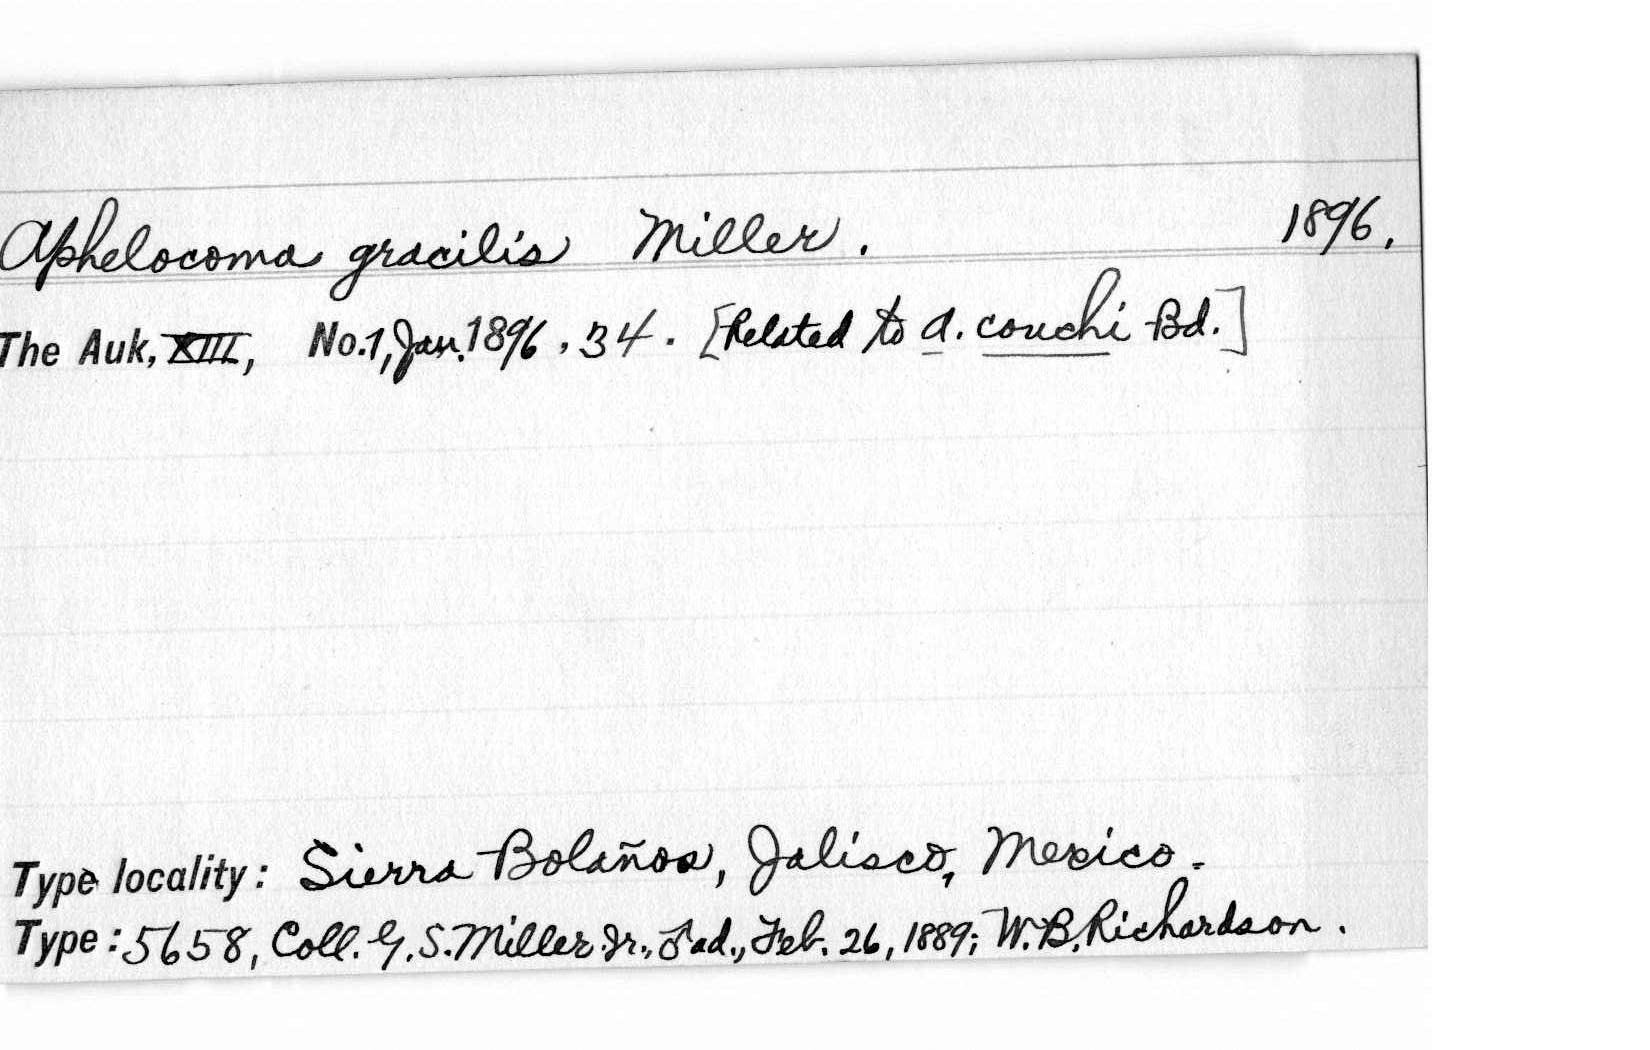 Aphelocoma gracilis Miller. 1896.
The Auk, XIII, No.1, Jan. 1896, 34. [Related to A. couchi Bd.]
Type locality: Sierra Bolaños, Jalisco, Mexico.
Type: 5658, Coll. G. S. Miller Jr., ♂ ad., Feb. 26, 1889; W. B. Richardson.